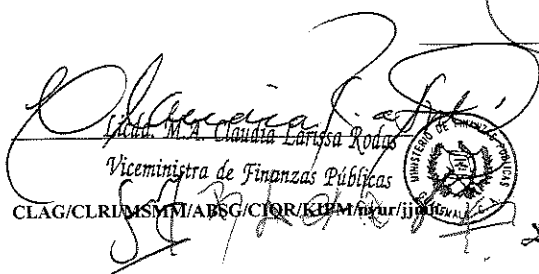 Licda. M.A. Claudia Larissa Rodas
Viceministra de Finanzas Públicas
MINISTERIO DE FINANZAS PÚBLICAS
CLAG/CLRI/MSMM/ABSG/CIQR/KIPM/